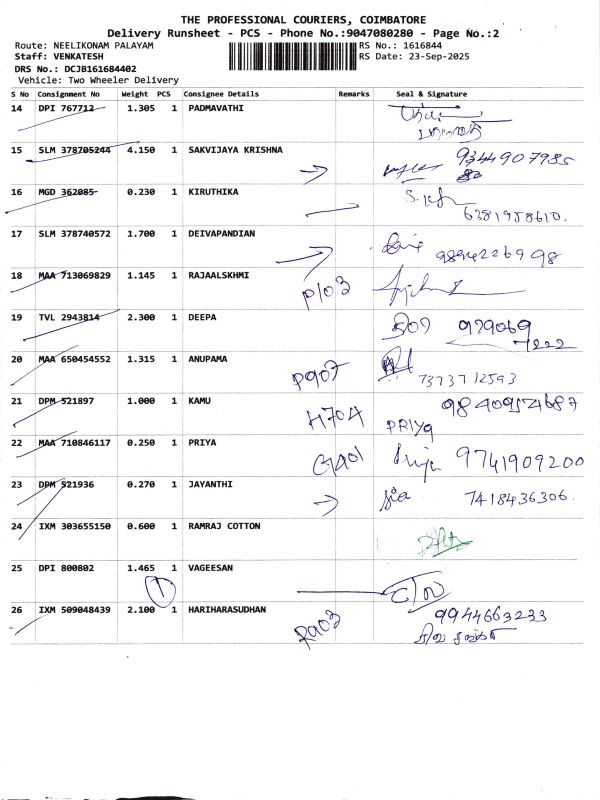 THE PROFESSIONAL COURIERS, COIMBATORE
Delivery Runsheet - PCS - Phone No.:9047080280 - Page No.:2
Route: NEELIKONAM PALAYAM RS No.: 1616844
Staff: VENKATESH RS Date: 23-Sep-2025
DRS No.: DCJB161684402
Vehicle: Two Wheeler Delivery
S No Consignment No Weight PCS Consignee Details Remarks Seal & Signature
14 DPI 767712 1.305 1 PADMAVATHI
15 SLM 378705244 4.150 1 SAKVIJAYA KRISHNA 9344907985
16 MGD 362085 0.230 1 KIRUTHIKA 6381958610.
17 SLM 378740572 1.700 1 DEIVAPANDIAN 9894226998
18 MAA 713069829 1.145 1 RAJAALSKHMI P103
19 TVL 2943814 2.300 1 DEEPA 979069
7222
20 MAA 650454552 1.315 1 ANUPAMA P907 7373712593
21 DPM 521897 1.000 1 KAMU H704 9840954687
PRIYA
22 MAA 710846117 0.250 1 PRIYA GA01 9741909200
23 DPM 521936 0.270 1 JAYANTHI 7418436306.
24 IXM 303655150 0.600 1 RAMRAJ COTTON
25 DPI 800802 1.465 1 VAGEESAN
1
26 IXM 509048439 2.100 1 HARIHARASUDHAN R903 9944663233